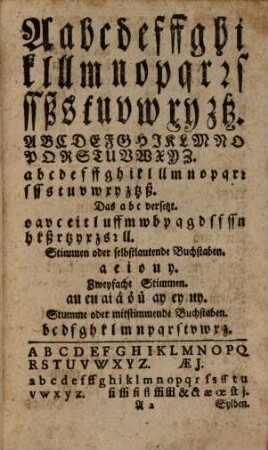 A a b c d e f ff g h i
k l ll m n o p q r ꝛ ſ
ſſ ß s t u v w x y z tz.
A B C D E F G H I K L M N O
P Q R S T U V W X Y Z.
a b c d e f ff g h i k l ll m n o p q r ꝛ
s ſ ſſ s t u v w x y z tz ß.
Das a b c verſetzt.
o a v c e i t l u ff m w b y q g d ſ ff ſſ n
h k ß r tz y x z s ꝛ ll.
Stimmen oder ſelbſtlautende Buchſtaben.
a e i o u y.
Zweyfache Stimmen.
au eu ai á ö ü ay ey uy.
Stumme oder mitſtimmende Buchſtaben.
b c d f g h k l m n p q r ſ t v w x z.
A B C D E F G H I J K L M N O P Q
R S T U V W X Y Z. Æ J.
a b c d e f ff g h i k l m n o p q r ſ s ſſ t u
v w x y z. ſi ſſi fi fl ffi ffl & ct æ œ ſt j.
A 2 Sylben.